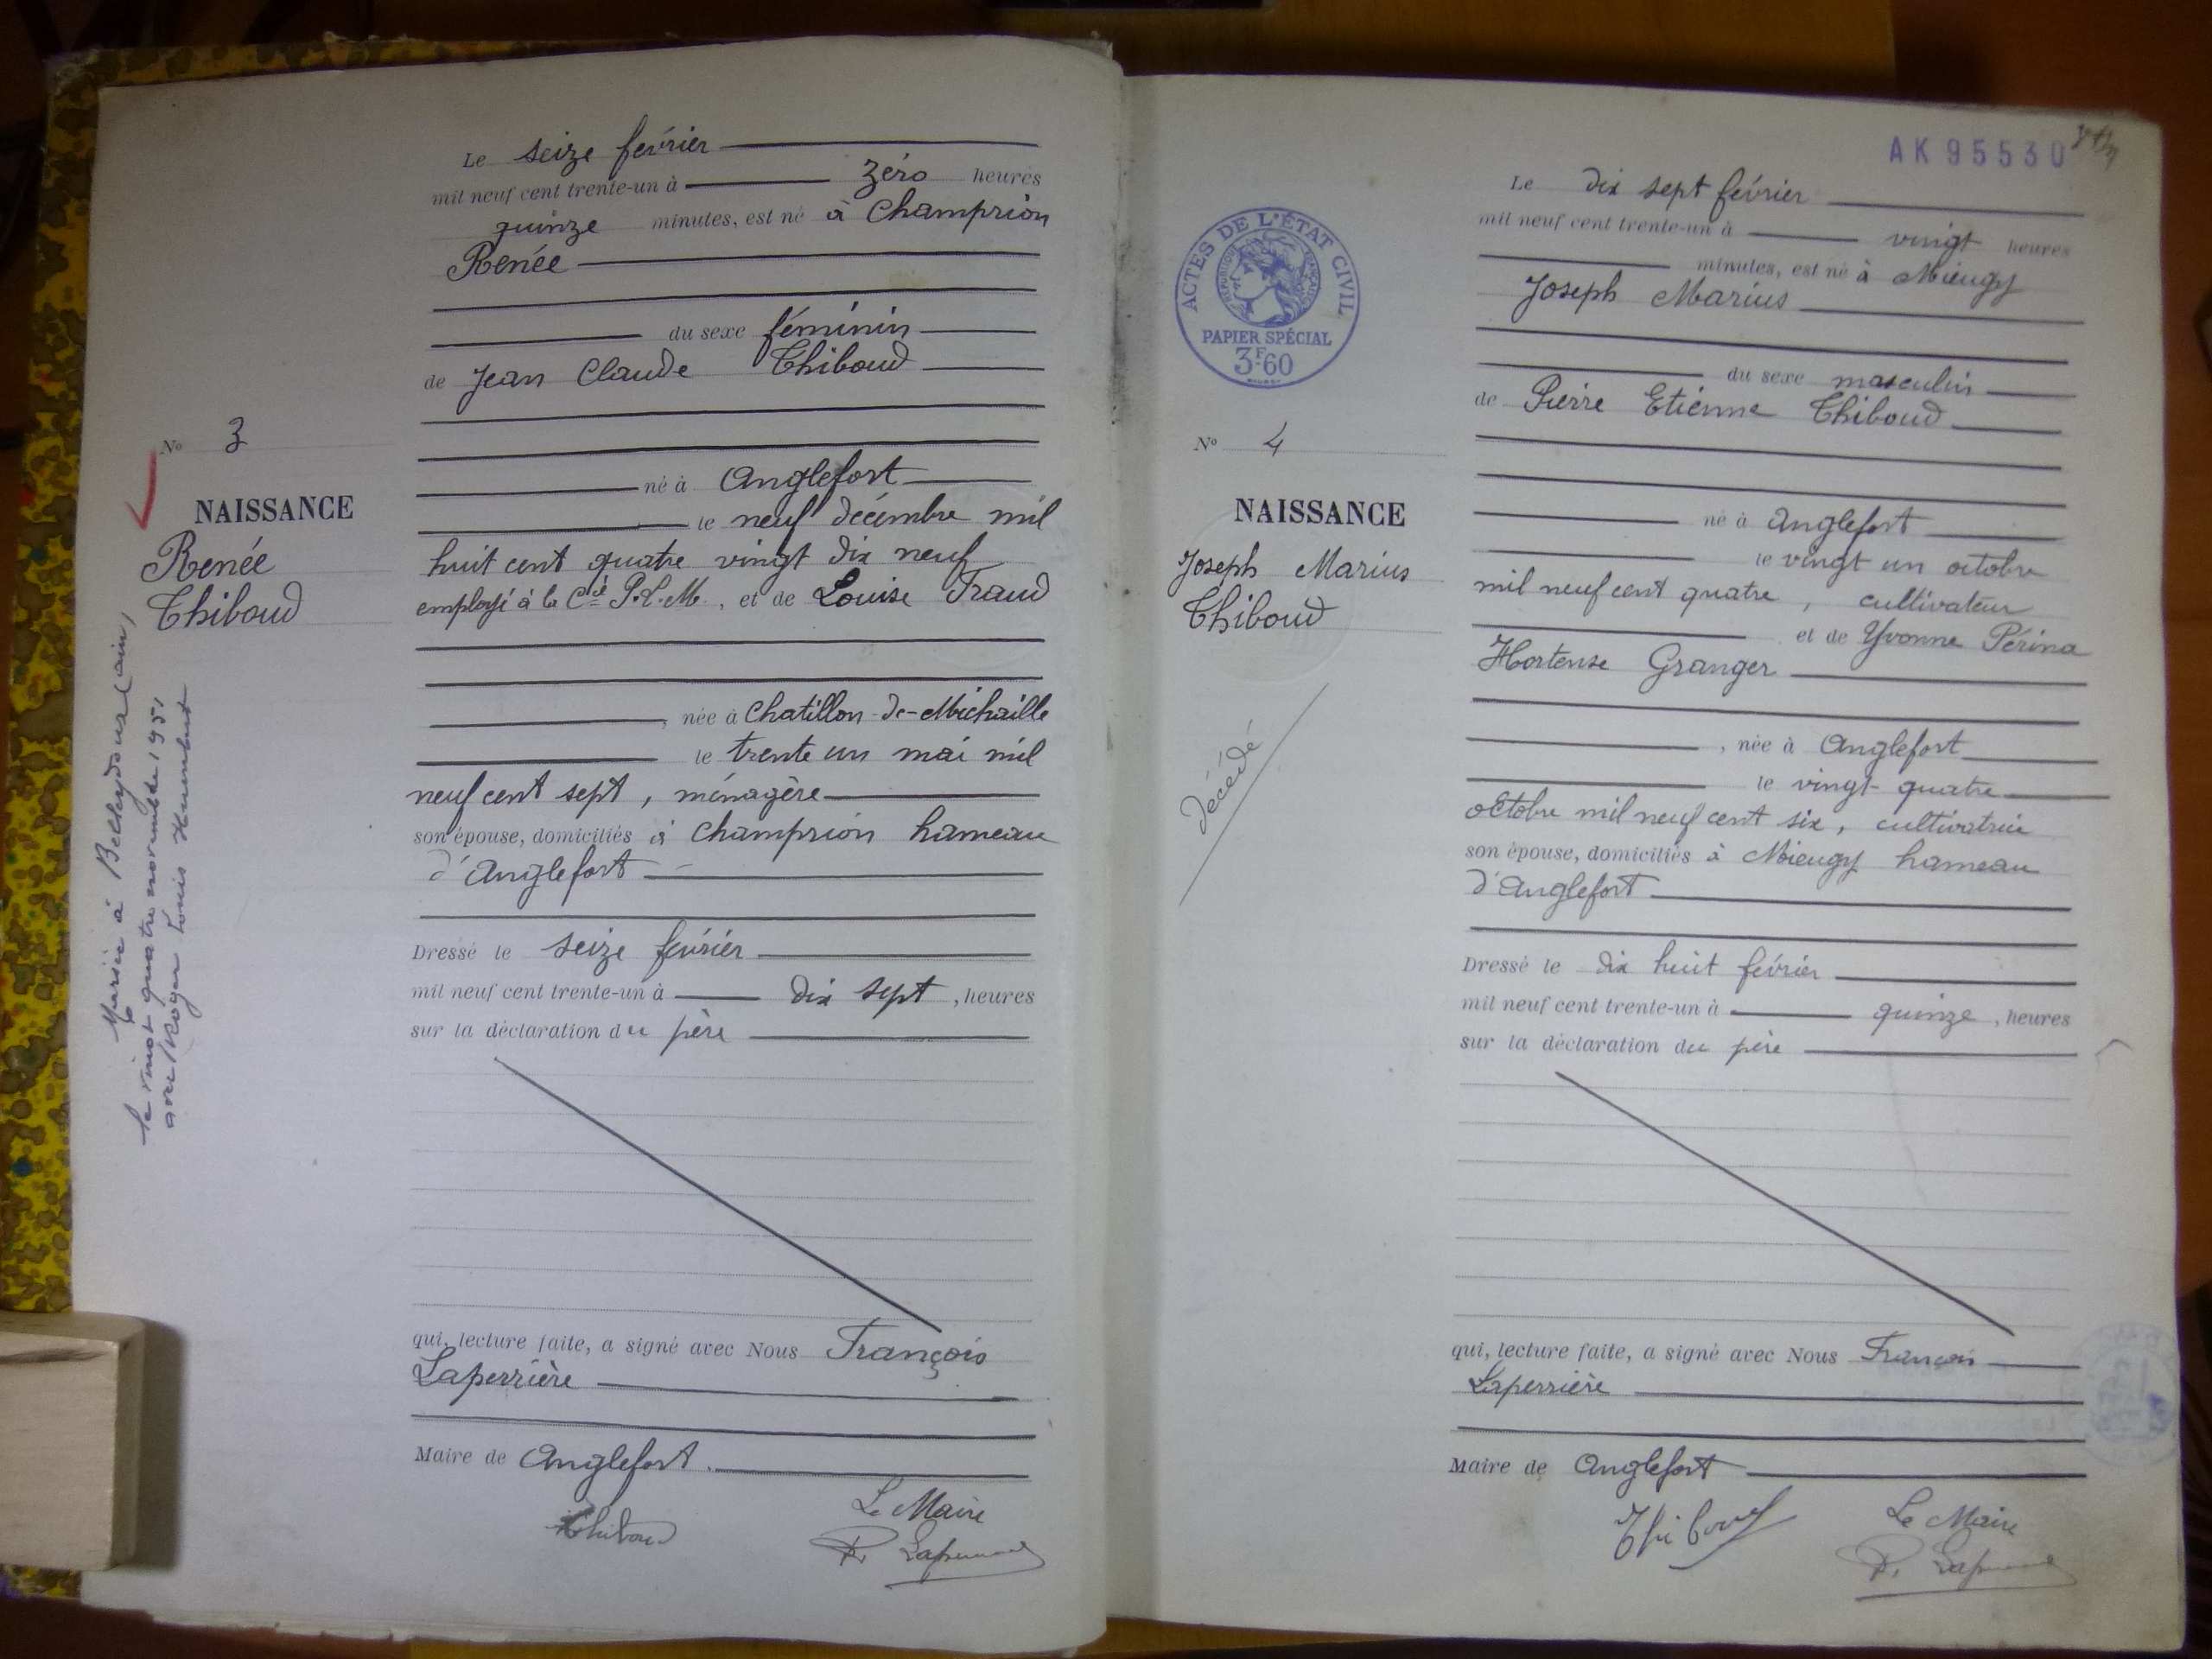 Le seize février
mil neuf cent trente-un à zéro heures
quinze minutes, est né à Champrion
Renée
du sexe féminin
de Jean Claude Thiboud
né à Anglefort
le neuf décembre mil
huit cent quatre vingt dix neuf
employé à la Cie P.L.M., et de Louise Fraud
, née à Chatillon-de-Michaille
le trente un mai mil
neuf cent sept, ménagère
son épouse, domiciliés à Champrion hameau
d'Anglefort
Dressé le seize février
mil neuf cent trente-un à dix sept, heures
sur la déclaration du père
qui, lecture faite, a signé avec Nous François
Laperrière
Maire de Anglefort.
Thiboud
Le Maire
No 3
NAISSANCE
Renée
Thiboud
Mariée à Belleydoux (ain),
le vingt quatre novembre 1951
avec Roger Louis Humbert
AK 95530
ACTES DE L'ÉTAT CIVIL
RÉPUBLIQUE FRANÇAISE
PAPIER SPÉCIAL
3F60
No 4
NAISSANCE
Joseph Marius
Thiboud
décédé
Le dix sept février
mil neuf cent trente-un à vingt heures
minutes, est né à Mieugy
Joseph Marius
du sexe masculin
de Pierre Etienne Thiboud
né à Anglefort
le vingt un octobre
mil neuf cent quatre, cultivateur
et de Yvonne Périna
Hortense Granger
, née à Anglefort
le vingt-quatre
octobre mil neuf cent six, cultivatrice
son épouse, domiciliés à Mieugy hameau
d'Anglefort
Dressé le dix huit février
mil neuf cent trente-un à quinze, heures
sur la déclaration du père
qui, lecture faite, a signé avec Nous François
Laperrière
Maire de Anglefort
Thiboud
Le Maire